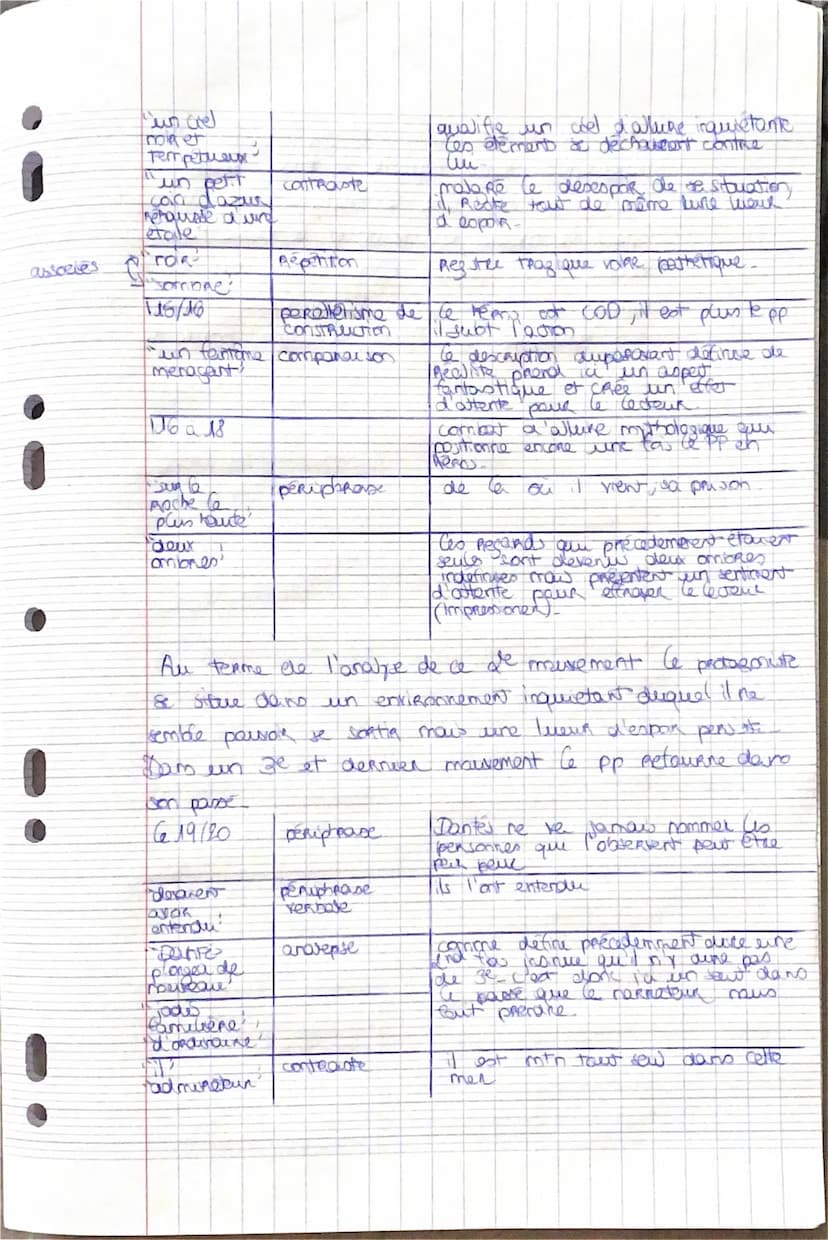 "un ciel
noir et
tempétueux"
qualifie un ciel d'allure inquiétante
les éléments se déchainent contre
lui
"un petit
coin d'azur
réhaussé d'une
étoile"
contraste
malgré le desespoir de sa situation,
il reste tout de même une lueur
d'espoir.
associés
"roi"
"sombre"
Répétition
Registre tragique voire pathétique.
l15/16
parallélisme de
construction
le héros est COD, il est plus le pp
il subit l'action
"un fantôme
menaçant"
comparaison
la description auparavant définie de
réalité prend ici un aspect
fantastique et crée un effet
d'attente pour le lecteur.
l16 à 18
combat d'allure mythologique qui
positionne encore une fois le PP en
héros.
"sur la
roche la
plus haute"
périphrase
de là où il vient, sa prison
"deux
ombres"
Les regards qui précedement étaient
seuls sont devenus deux ombres
indéfinies mais présentent un sentiment
d'attente pour effrayer le lecteur
(impressionner).
Au terme de l'analyse de ce 2e mouvement le protagoniste
se situe dans un environnement inquiétant duquel il ne
semble pouvoir se sortir mais une lueur d'espoir persiste.
Dans un 3e et dernier mouvement le pp retourne dans
son passé.
l 19/20
périphrase
Dantès ne va jamais nommer les
personnes qui l'observent peut être
par peur
"devaient
avoir
entendu"
périphrase
verbale
ils l'ont entendu
"Dantès
plongea de
nouveau"
analepse
comme défini précedemment
de 3e c'est donc ici un saut dans
le passé que le narrateur nous
fait prendre.
"jadis
familière"
"d'ordinaire"
"il"
"admirateur"
contraste
il est mtn tout seul dans cette
mer